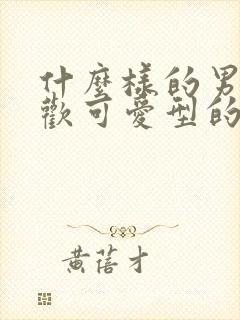 什麼樣的男
歡可愛型的
黃蓓才